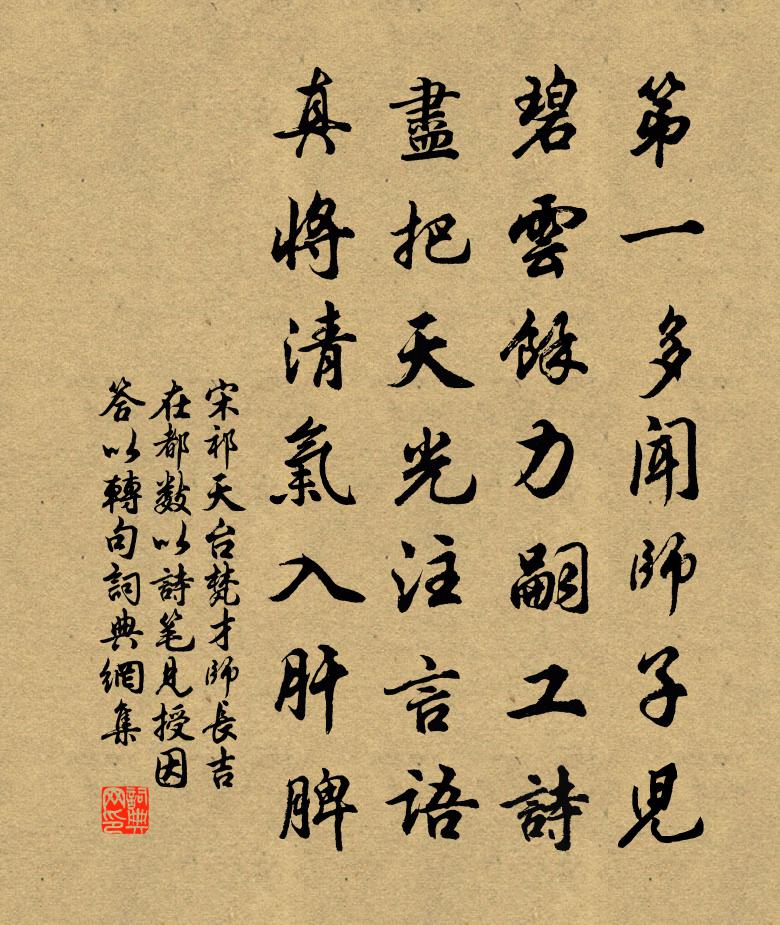 第一多聞師子児
碧雲餘力嗣工詩
盡把天光注言語
真將清氣入肝脾
宋祁天台梵才師長吉
在都数以詩笔見授因
答以轉句詞典網集
詞典网印